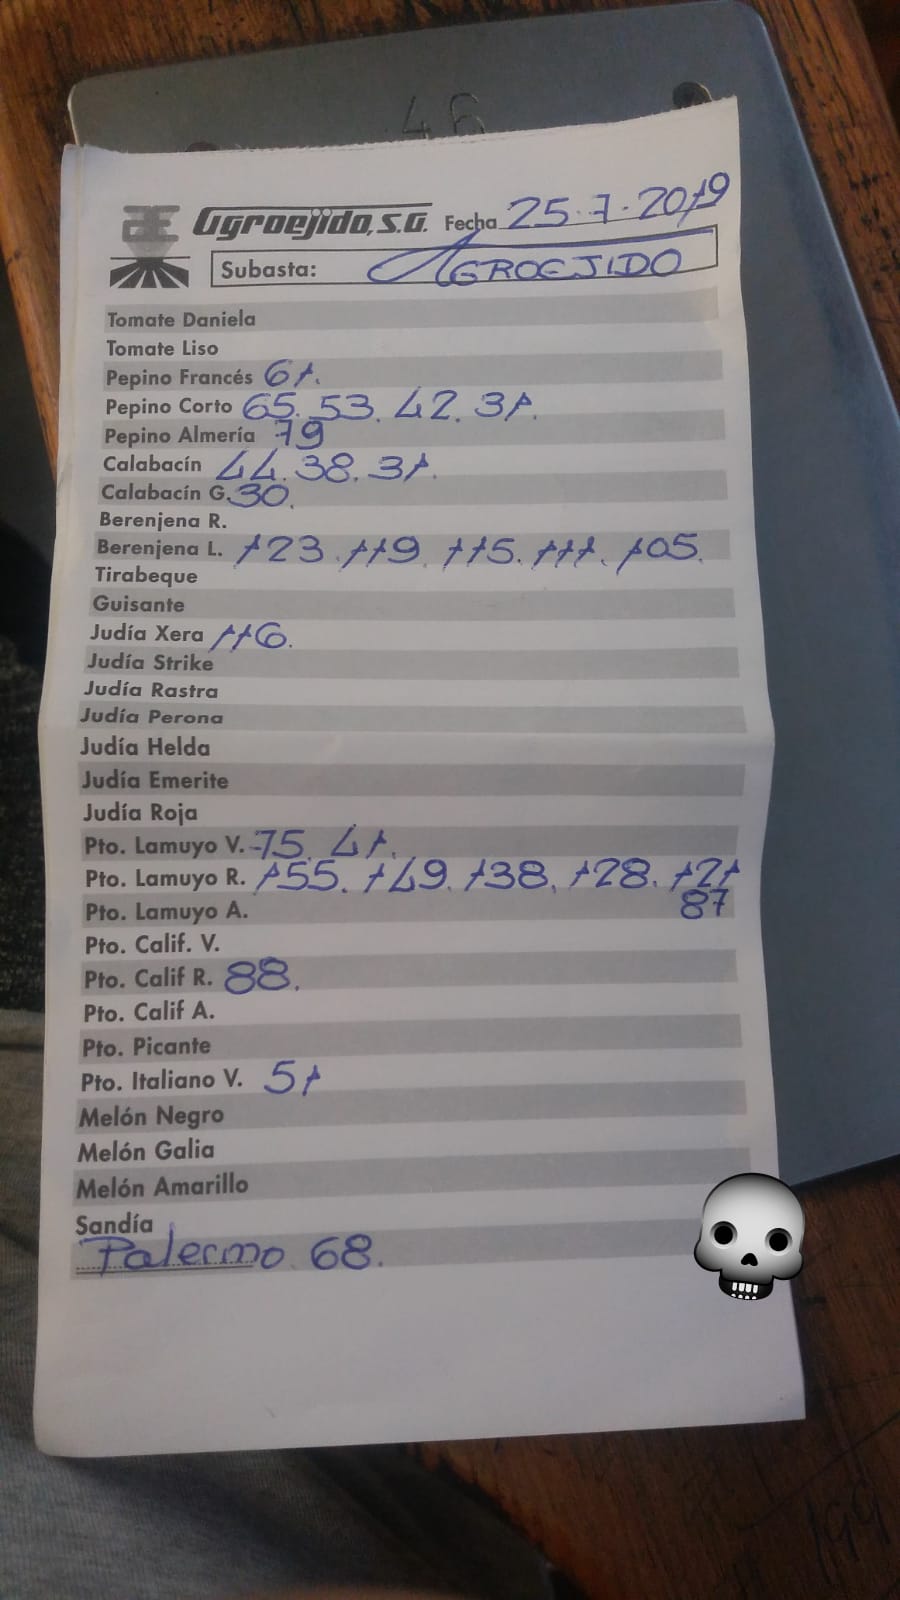 46
Agroejido, S.A. Fecha 25-7-2019
Subasta: AGROEJIDO
Tomate Daniela
Tomate Liso
Pepino Francés 61.
Pepino Corto 65. 53. 42. 31.
Pepino Almería 79
Calabacín 44. 38. 31.
Calabacín G. 30.
Berenjena R.
Berenjena L. 123. 119. 115. 111. 105.
Tirabeque
Guisante
Judía Xera 116.
Judía Strike
Judía Rastra
Judía Perona
Judía Helda
Judía Emerite
Judía Roja
Pto. Lamuyo V. 75. 41.
Pto. Lamuyo R. 155. 149. 138. 128. 121
87
Pto. Lamuyo A.
Pto. Calif. V.
Pto. Calif R. 88.
Pto. Calif A.
Pto. Picante
Pto. Italiano V. 51
Melón Negro
Melón Galia
Melón Amarillo
Sandía
Palermo 68.
199